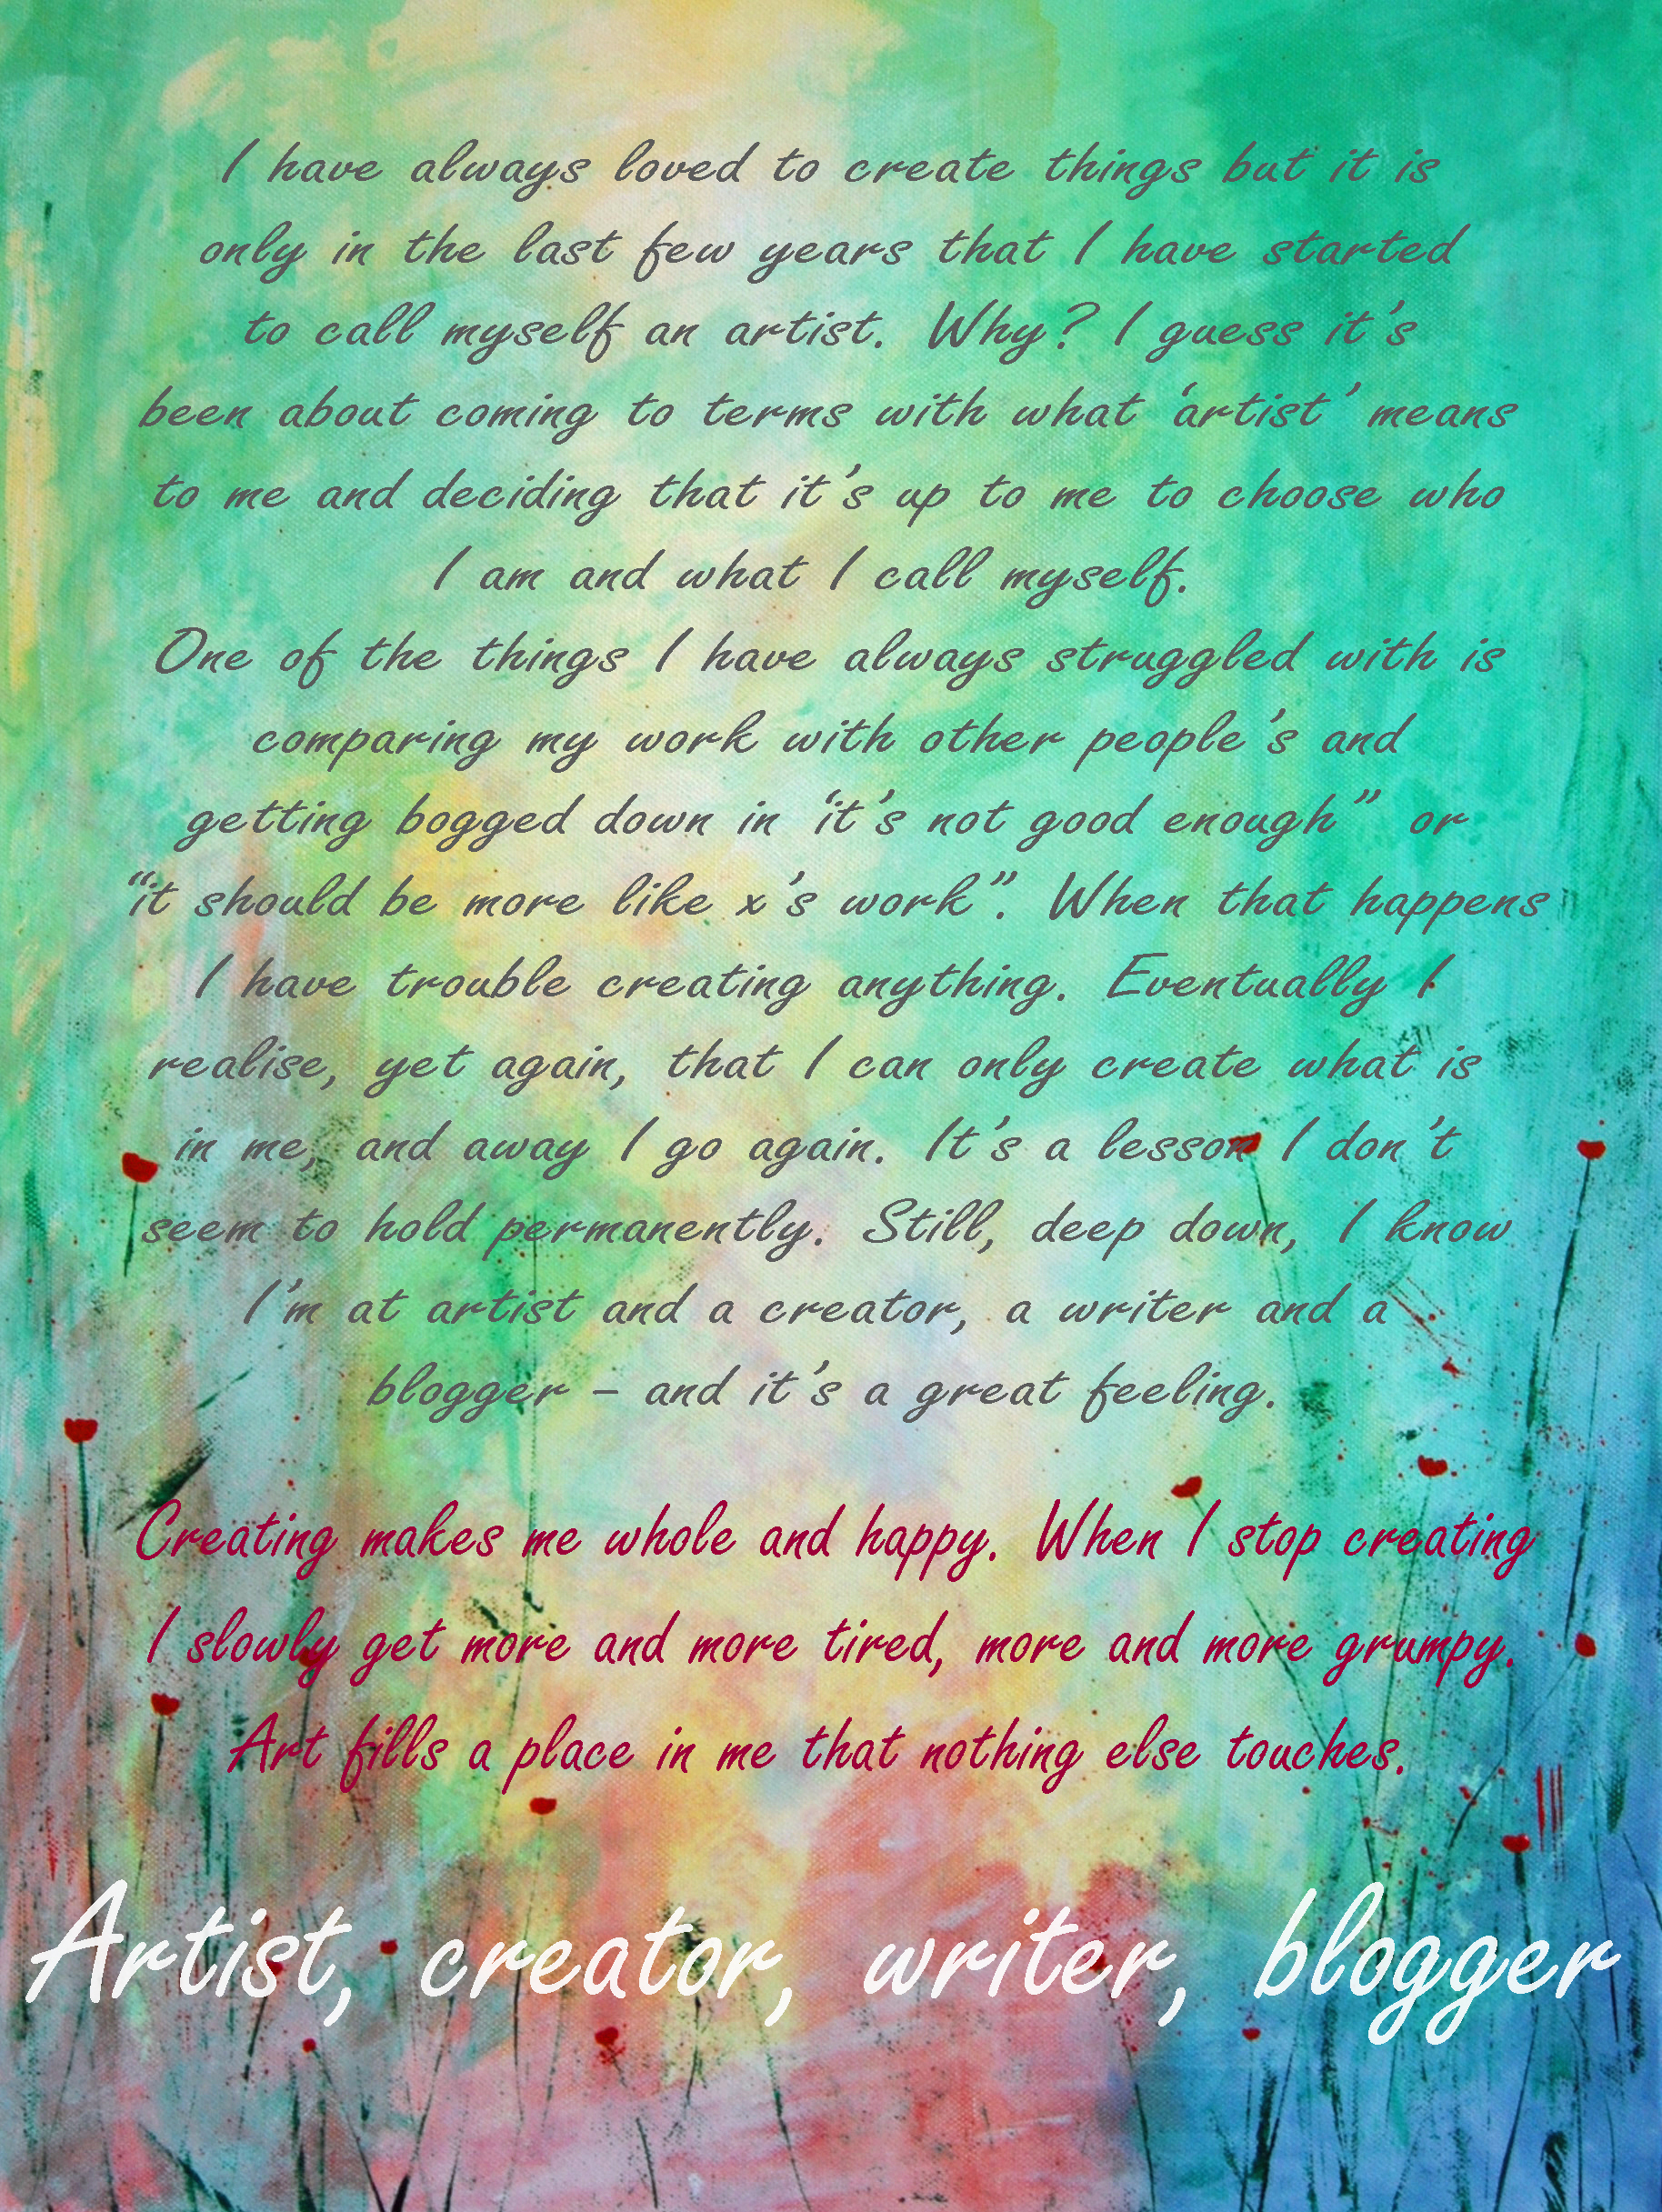 I have always loved to create things but it is
only in the last few years that I have started
to call myself an artist. Why? I guess it’s
been about coming to terms with what ‘artist’ means
to me and deciding that it’s up to me to choose who
I am and what I call myself.
One of the things I have always struggled with is
comparing my work with other people’s and
getting bogged down in ‘it’s not good enough” or
“it should be more like x’s work”. When that happens
I have trouble creating anything. Eventually I
realise, yet again, that I can only create what is
in me, and away I go again. It’s a lesson I don’t
seem to hold permanently. Still, deep down, I know
I’m at artist and a creator, a writer and a
blogger – and it’s a great feeling.
Creating makes me whole and happy. When I stop creating
I slowly get more and more tired, more and more grumpy.
Art fills a place in me that nothing else touches.
Artist, creator, writer, blogger